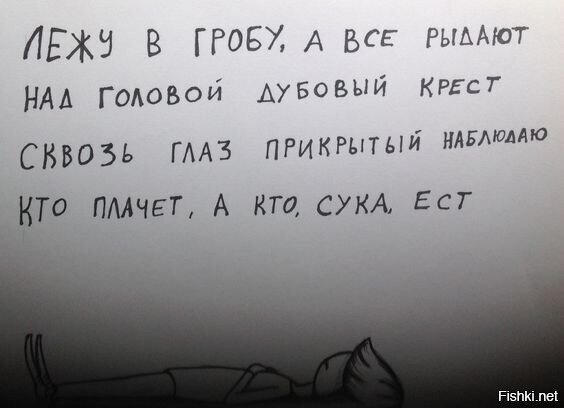 ЛЕЖУ В ГРОБУ, А ВСЕ РЫДАЮТ
НАД ГОЛОВОЙ ДУБОВЫЙ КРЕСТ
СКВОЗЬ ГЛАЗ ПРИКРЫТЫЙ НАБЛЮДАЮ
КТО ПЛАЧЕТ, А КТО, СУКА, ЕСТ
Fishki.net